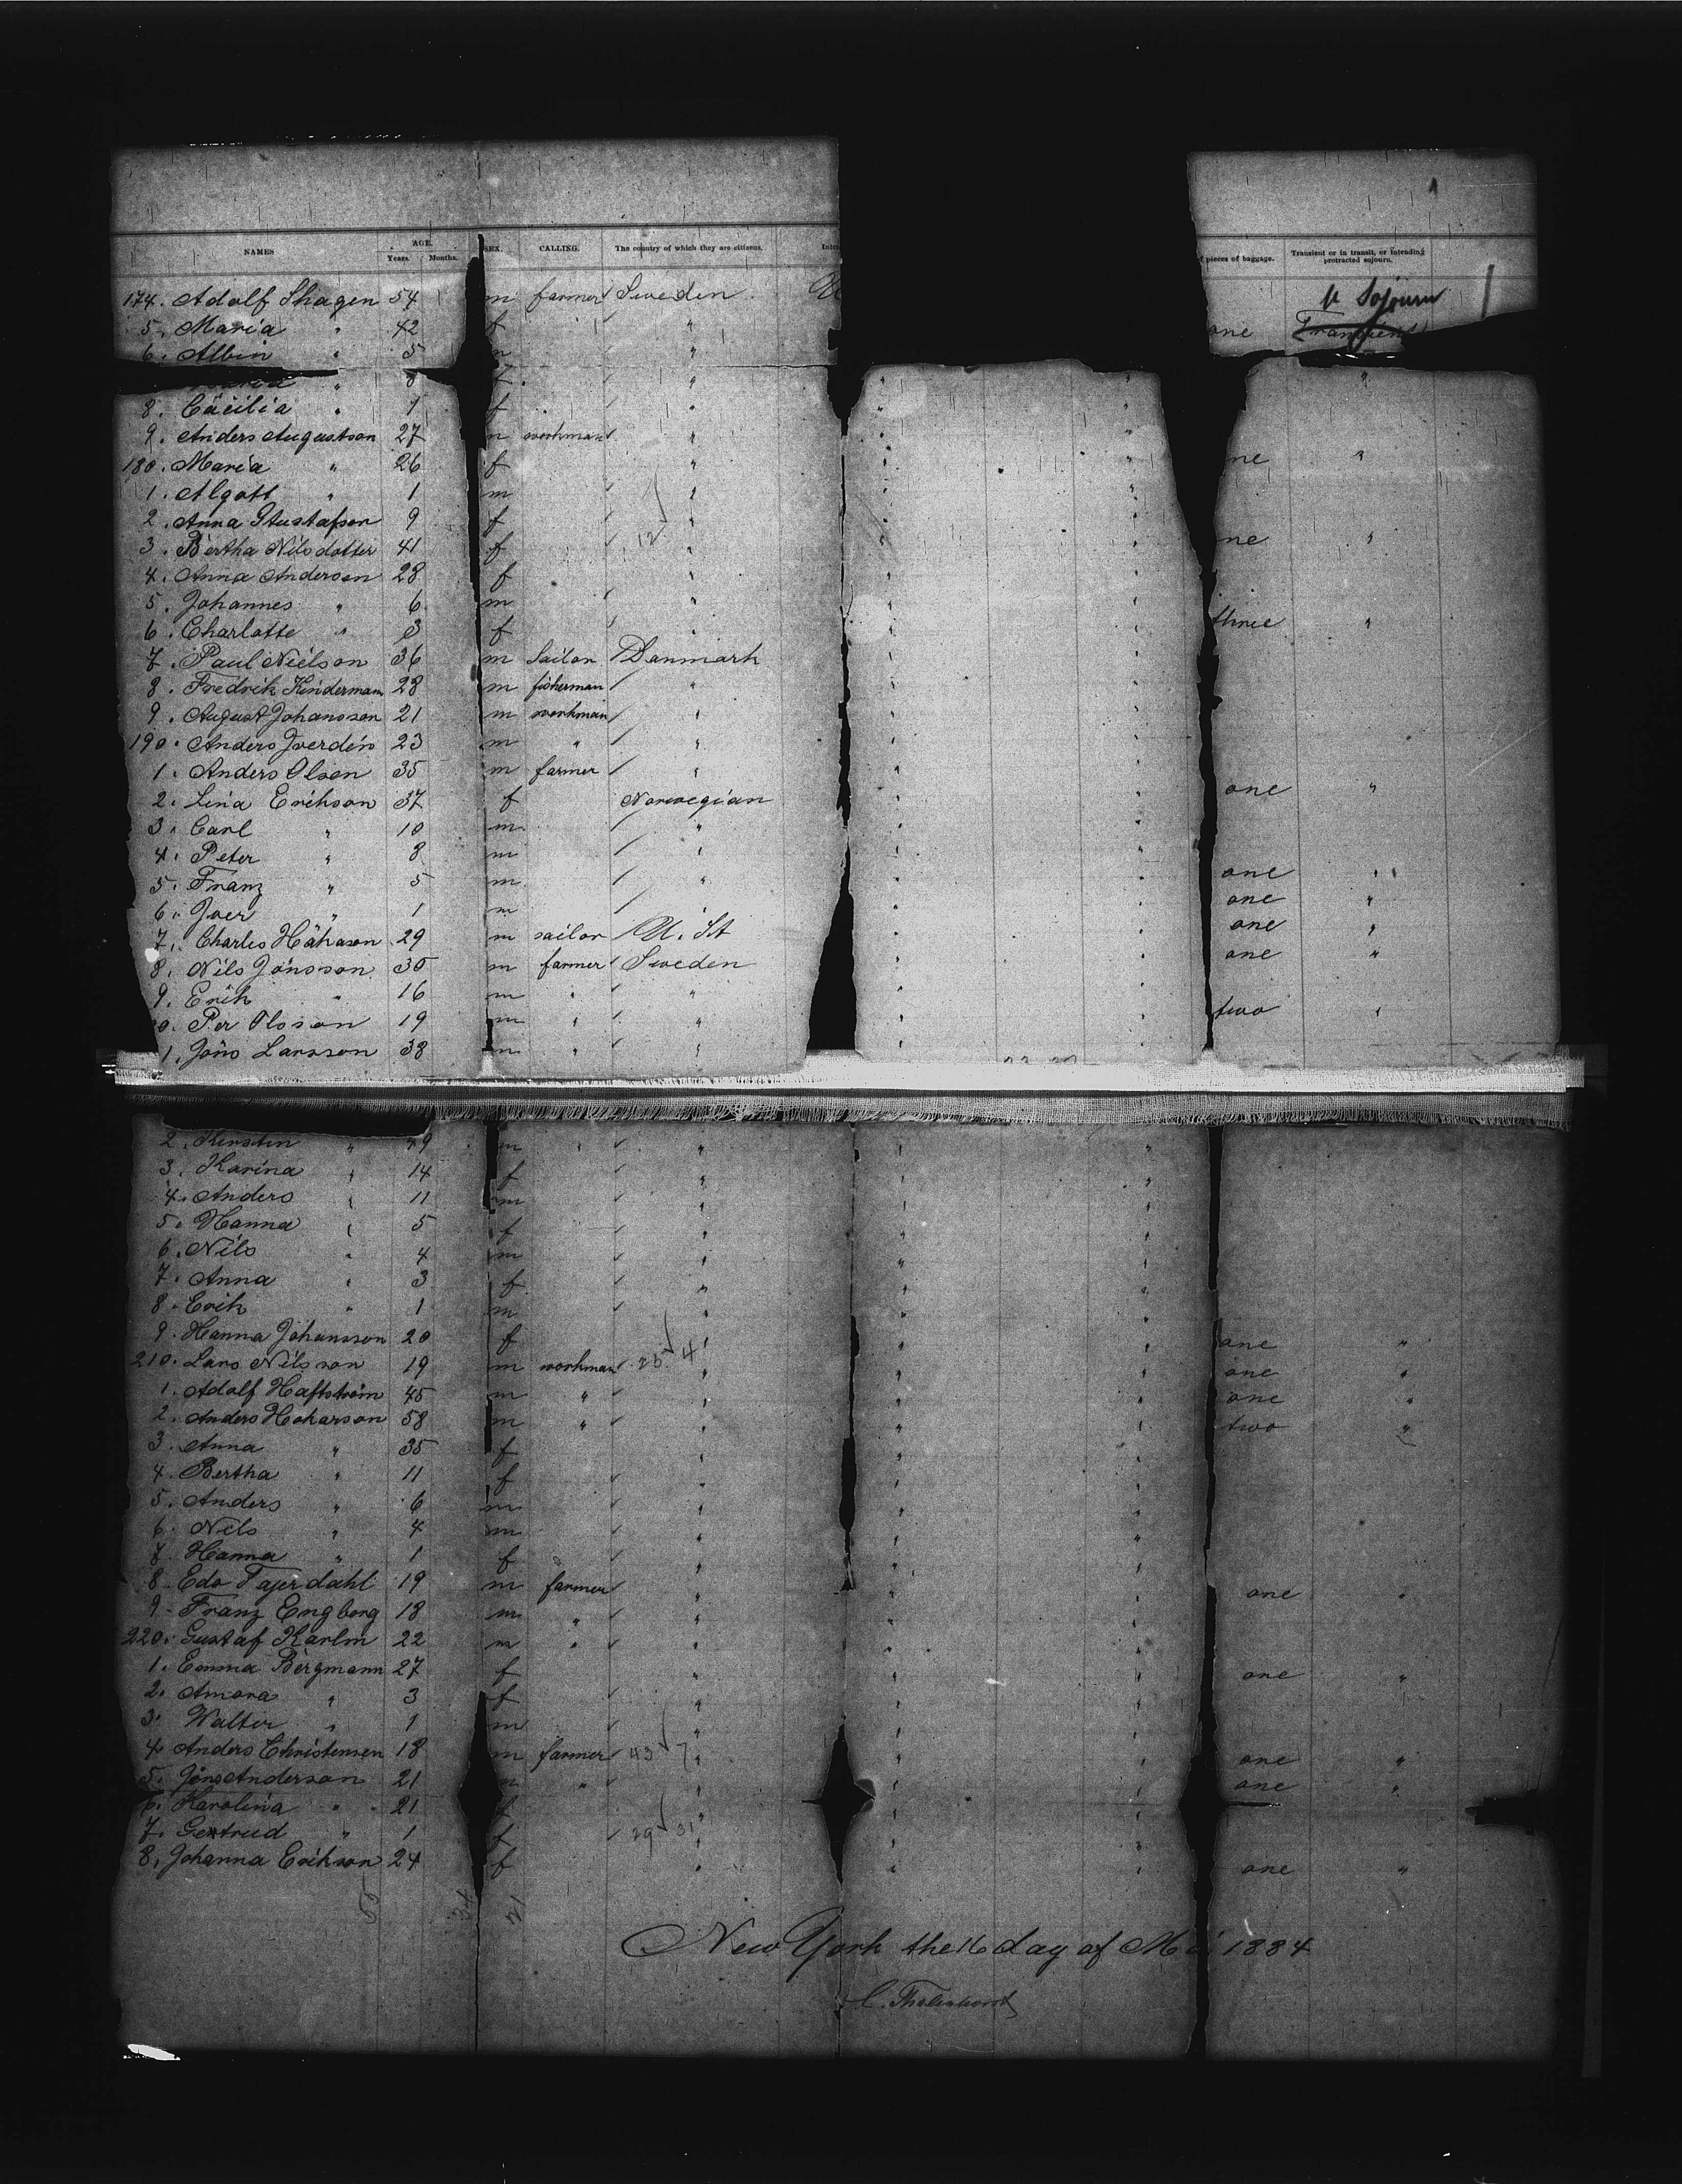 NAMES AGE. SEX. CALLING. The country of which they are citizens. pieces of baggage. Transient or in transit, or intending protracted sojourn.
Years. Months.
174. Adolf Skagen 54 m farmer Sweden U Sojourn
5. Maria " 42 f " one Transient
6. Albin " 5 m "
8 f "
8. Cäcilia " 1 f "
9. Anders Augustson 27 m workman "
180. Maria " 26 f " one "
1. Algott " 1 m "
2. Anna Gustafson 9 f "
3. Bertha Nilsdotter 41 f 12 " one "
4. Anna Anderson 28 f "
5. Johannes " 6 m "
6. Charlotte " 3 f " three "
7. Paul Nielson 36 m Sailor Danmark
8. Fredrik Kindermann 28 m fisherman "
9. August Johansson 21 m workman "
190. Anders Iverdén 23 m " "
1. Anders Olsen 35 m farmer "
2. Lina Erikson 37 f Norwegian one "
3. Carl " 10 m "
4. Peter " 8 m "
5. Franz " 5 m " one "
6. Iver " 1 m " one "
7. Charles Håkason 29 m sailor U. St one "
8. Nils Jönsson 30 m farmer Sweden one "
9. Erik " 16 m " "
0. Per Olsson 19 m " " two "
1. Jöns Larsson 38 m " "
2. Kersten " 49 m " "
3. Karina " 14 f "
4. Anders " 11 m "
5. Hanna " 5 f "
6. Nils " 4 m "
7. Anna " 3 f "
8. Erik " 1 m "
9. Hanna Johansson 20 f " one "
210. Lars Nilsson 19 m workman 25 4 " one "
1. Adolf Haftström 45 m " " one "
2. Anders Hokarson 58 m " " two "
3. Anna " 35 f "
4. Bertha " 11 f "
5. Anders " 6 m "
6. Nils " 4 m "
7. Hanna " 1 f "
8. Edo Fajerdahl 19 m farmer " one "
9. Franz Engborg 18 m " "
220. Gustaf Karlm 22 m " "
1. Emma Bergmann 27 f " one "
2. Amora " 3 f "
3. Walter " 1 m "
4. Anders Christensen 18 m farmer 43 7 " one "
5. Jöns Anderson 21 m " " one "
6. Karolina " 21 f "
7. Gertrud " 1 f 29 31 "
8. Johanna Erikson 24 f " one "
34 21
New York the 16 day of Mai 1884